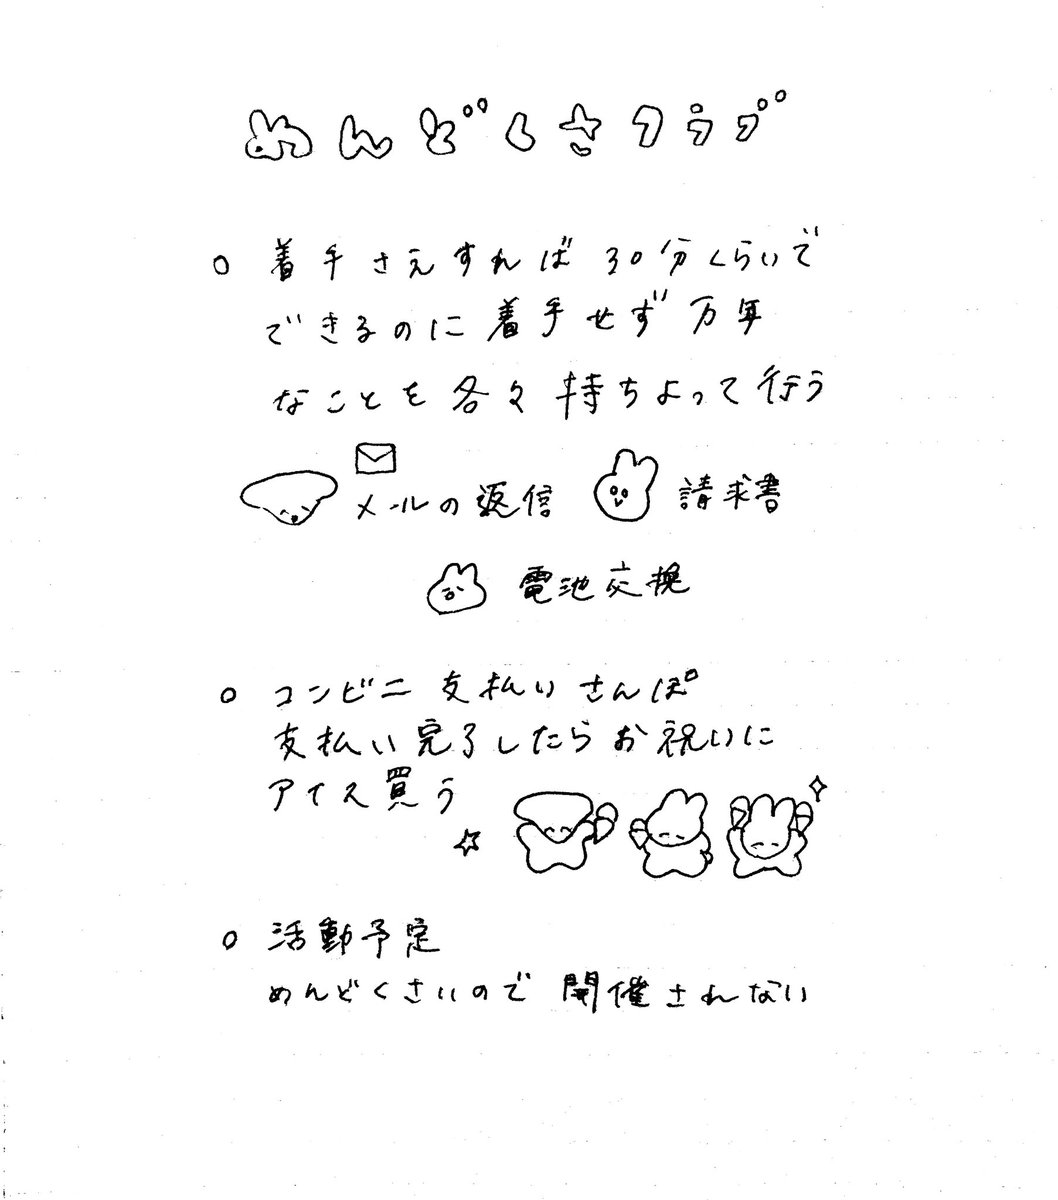 めんどくさクラブ
○ 着手さえすれば30分くらいで
できるのに着手せず万年
なことを各々持ちよって行う
メールの返信 請求書
電池交換
○ コンビニ支払いさんぽ
支払い完了したらお祝いに
アイス買う
○ 活動予定
めんどくさいので開催されない